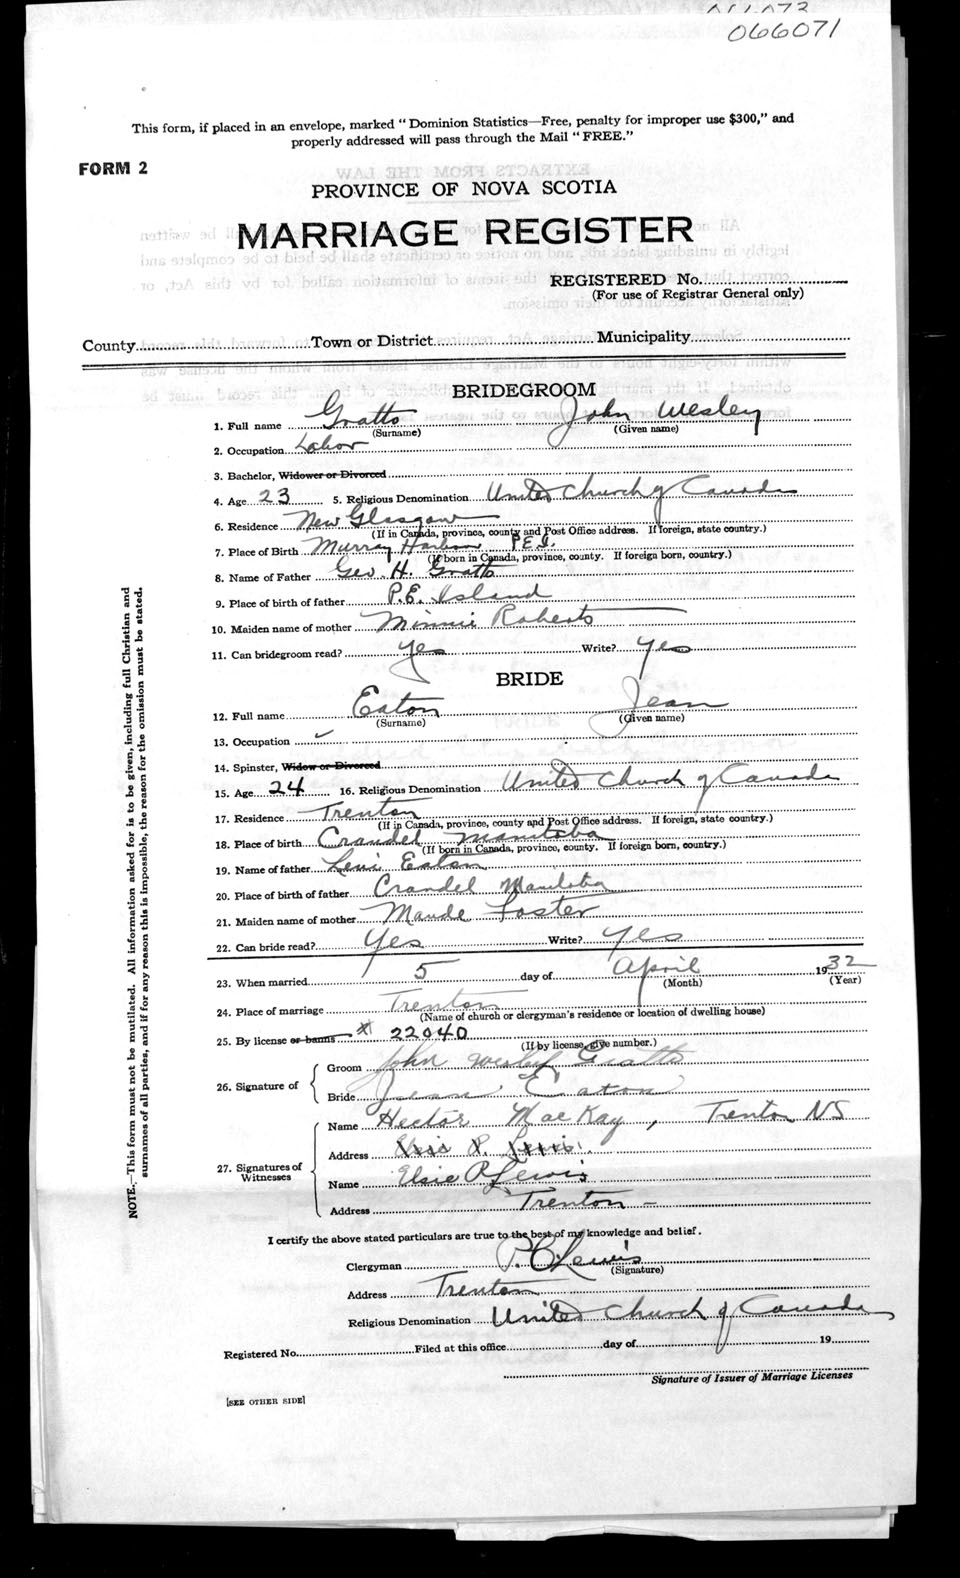 066071
This form, if placed in an envelope, marked "Dominion Statistics—Free, penalty for improper use $300," and
properly addressed will pass through the Mail "FREE."
FORM 2
PROVINCE OF NOVA SCOTIA
MARRIAGE REGISTER
REGISTERED No.
(For use of Registrar General only)
County Town or District Municipality
BRIDEGROOM
1. Full name Gratto John Wesley
(Surname) (Given name)
2. Occupation Labor
3. Bachelor, Widower or Divorced
4. Age 23 5. Religious Denomination United Church of Canada
6. Residence New Glasgow
(If in Canada, province, county and Post Office address. If foreign, state country.)
7. Place of Birth Murray Harbour P.E.I.
(If born in Canada, province, county. If foreign born, country.)
8. Name of Father Geo H. Gratto
9. Place of birth of father P.E. Island
10. Maiden name of mother Minnie Roberts
11. Can bridegroom read? yes Write? yes
BRIDE
12. Full name Eaton Jean
(Surname) (Given name)
13. Occupation ✓
14. Spinster, Widow or Divorced
15. Age 24 16. Religious Denomination United Church of Canada
17. Residence Trenton
(If in Canada, province, county and Post Office address. If foreign, state country.)
18. Place of birth Crandel Manitoba
(If born in Canada, province, county. If foreign born, country.)
19. Name of father Levi Eaton
20. Place of birth of father Crandel Manitoba
21. Maiden name of mother Maude Foster
22. Can bride read? Yes Write? Yes
23. When married 5 day of April 1932
(Month) (Year)
24. Place of marriage Trenton
(Name of church or clergyman's residence or location of dwelling house)
25. By license or banns # 22040
(If by license, give number.)
26. Signature of
Groom John Wesley Gratto
Bride Jean Eaton
27. Signatures of
Witnesses
Name Hector MacKay, Trenton NS
Address Elsie P. Lewis
Name Elsie P Lewis
Address Trenton —
I certify the above stated particulars are true to the best of my knowledge and belief.
Clergyman P. C. Lewis
(Signature)
Address Trenton
Religious Denomination United Church of Canada
Registered No. Filed at this office day of 19
Signature of Issuer of Marriage Licenses
[SEE OTHER SIDE]
NOTE.—This form must not be mutilated. All information asked for is to be given, including full Christian and
surnames of all parties, and if for any reason this is impossible, the reason for the omission must be stated.